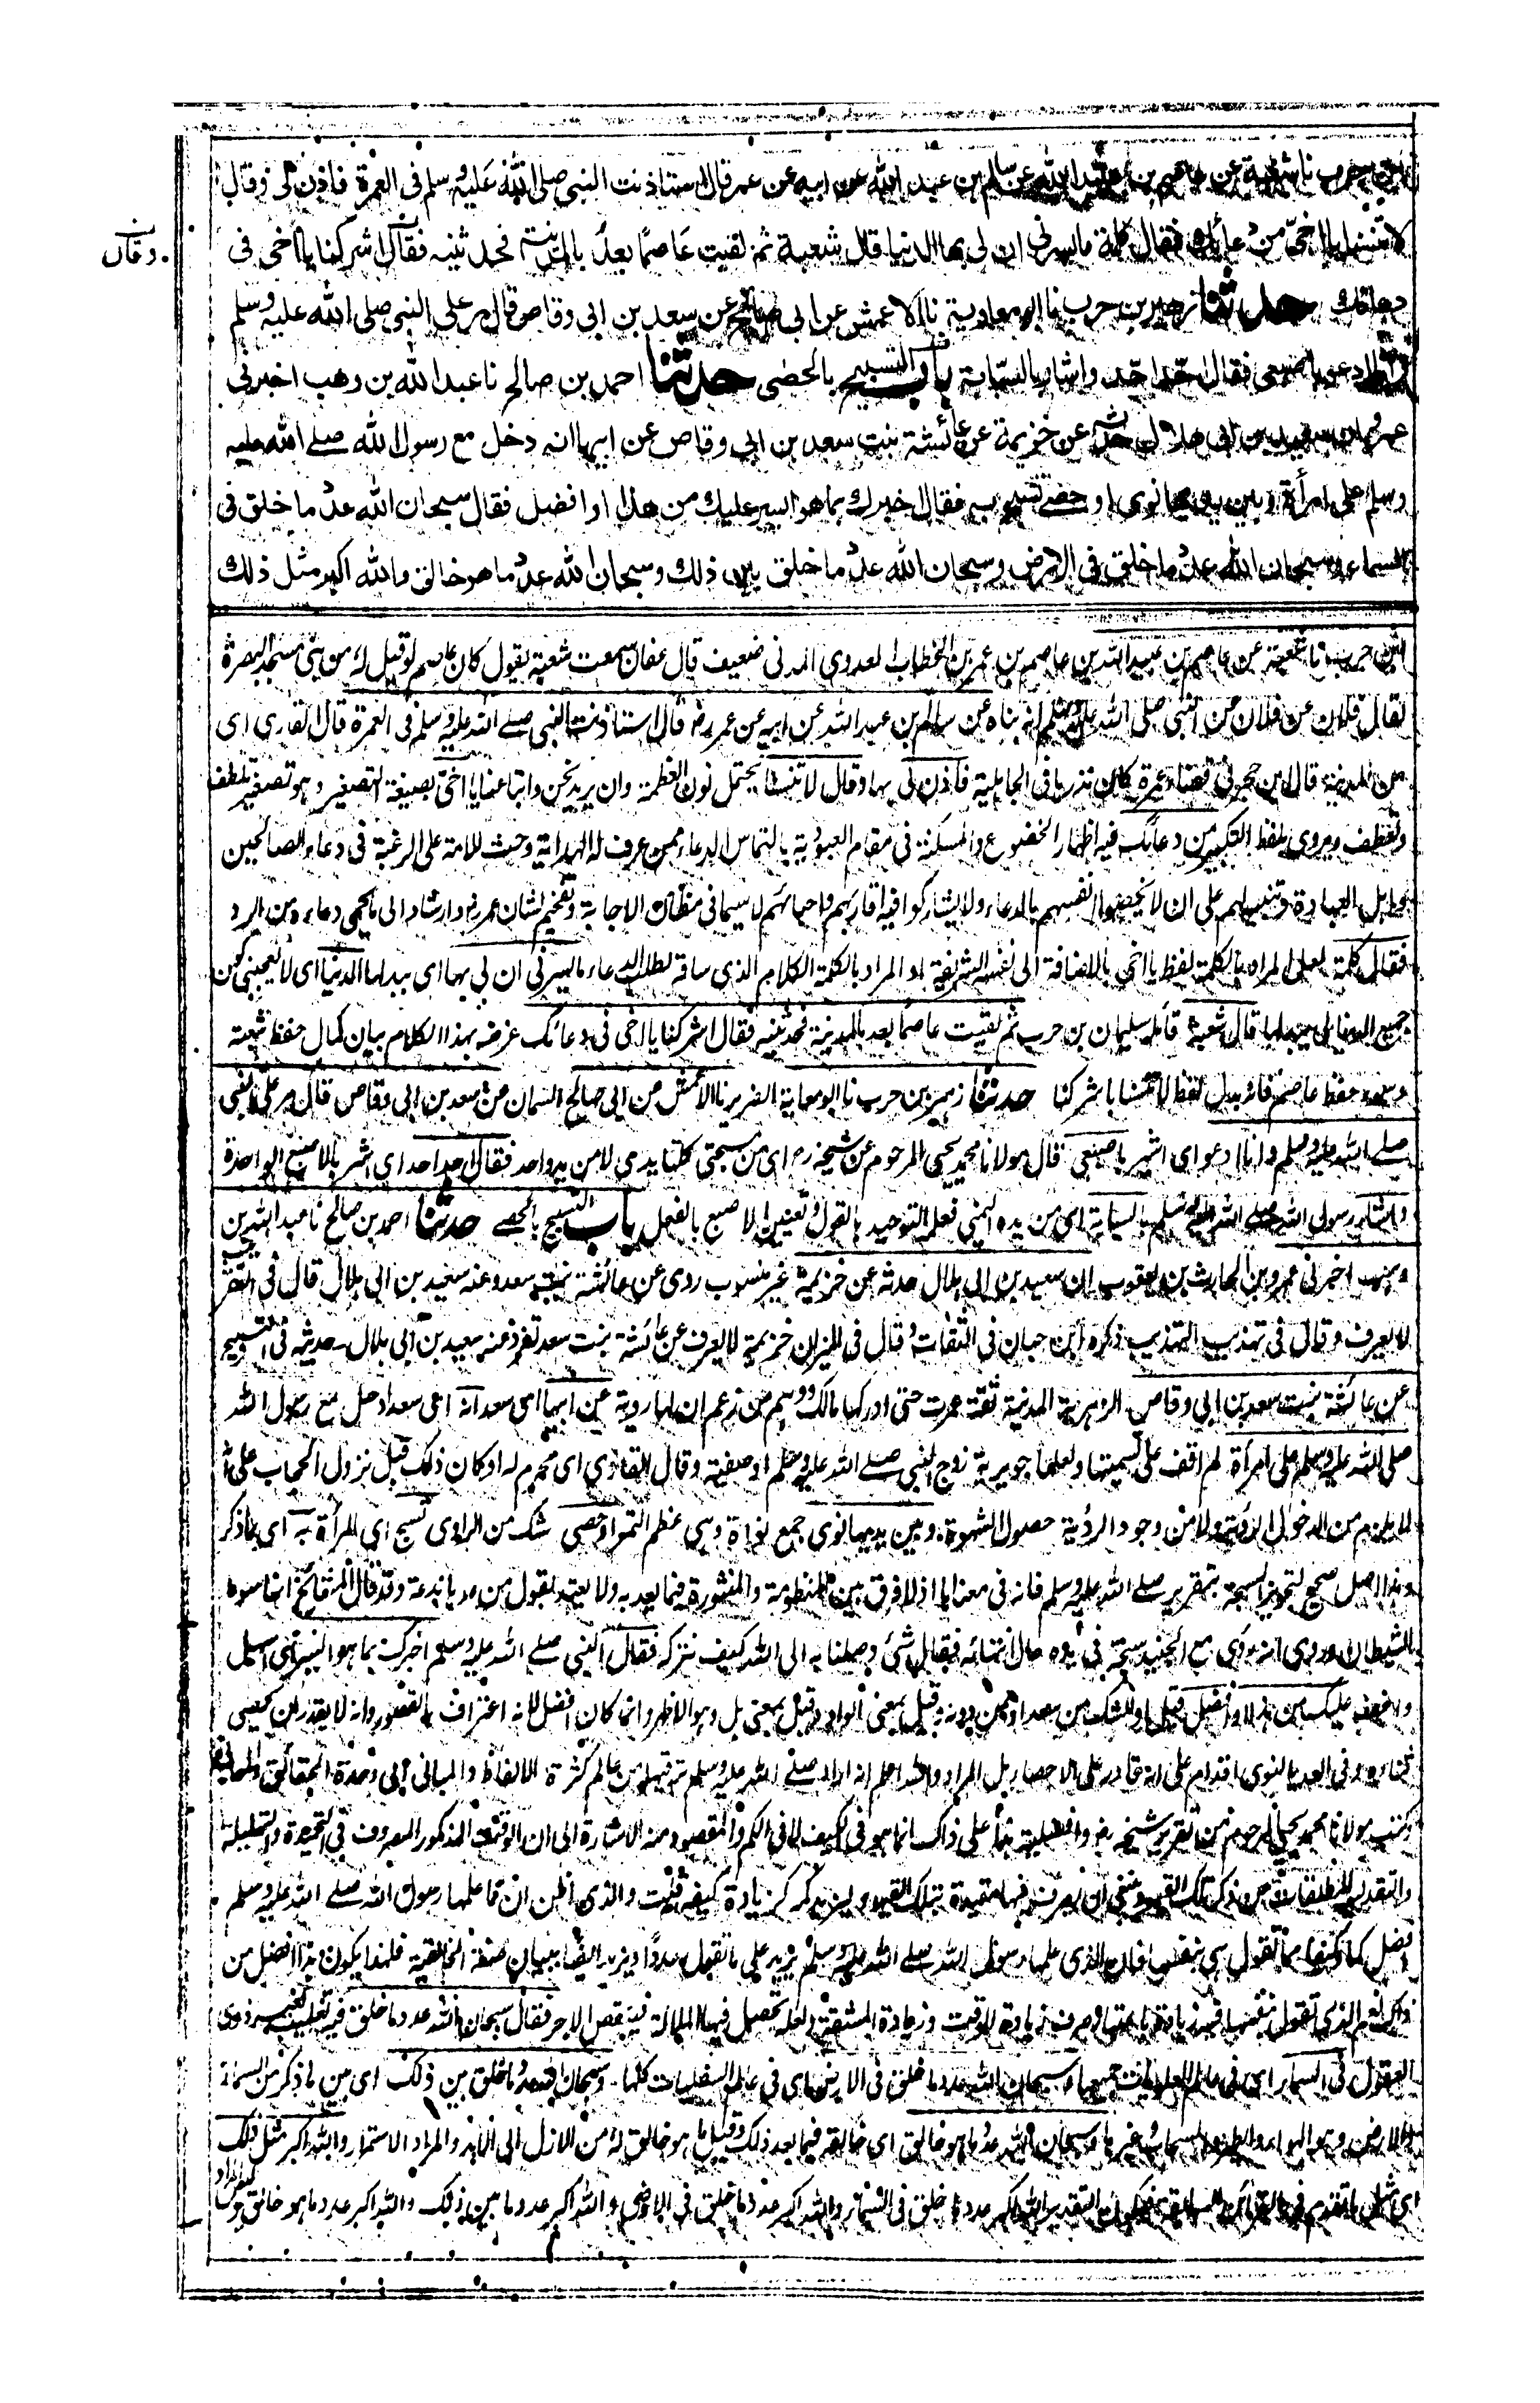 بن حرب نا شعبة عن عاصم بن عبيد الله عن سالم بن عبد الله عن ابيه عن عمر قال استاذنت النبى صلى الله عليه وسلم فى العمرة فاذن لى وقال
لا تنسنا يا اخىّ من دعائك فقال كلمة ما يسرنى ان لى بها الدنيا قال شعبة ثم لقيت عاصمًا بعدُ بالمدينة فحدثنيه فقال اشركنا يا اخى فى
وقال
دعائك حدثنا زهير بن حرب نا ابو معاوية نا الاعمش عن ابى صالح عن سعد بن ابى وقاص قال مر على النبى صلى الله عليه وسلم
ادعو باصبعى فقال احّد احّد واشار بالسبابة باب التسبيح بالحصى حدثنا احمد بن صالح نا عبد الله بن وهب اخبرنى
عمرو ان سعيد بن ابى هلال حدثه عن خزيمة عن عائشة بنت سعد بن ابى وقاص عن ابيها انه دخل مع رسول الله صلے الله عليه
وسلم على امرأة وبين يديها نوى او حصى تسبح به فقال اخبرك بما هو ايسر عليك من هذا او افضل فقال سبحان الله عدد ما خلق فى
السماء وسبحان الله عدد ما خلق فى الارض وسبحان الله عدد ما خلق بين ذلك وسبحان الله عدد ما هو خالق والله اكبر مثل ذلك
بن حرب نا شعبة عن عاصم بن عبيد الله بن عاصم بن عمر بن الخطاب العدوى المدنى ضعيف قال عفان سمعت شعبة يقول كان عاصم لو قيل له من بنى مسجد البصرة
لقال فلان عن فلان عن النبى صلى الله عليه وسلم انه بناه عن سالم بن عبد الله عن ابيه عن عمر رض قال استاذنت النبى صلے الله عليه وسلم فى العمرة قال القارى اى
من المدينة قال ابن حجر فى قضاء عمرة كان نذرها فى الجاهلية فاذن لى بها وقال لا تنسنا يحتمل نون العظمة وان يريد نحن واتباعنا يا اخىّ بصيغة التصغير وهو تصغير تلطف
وتعطف ويروى بلفظ التكبير من دعائك فيه اظهار الخضوع والمسكنة فى مقام العبودية بالتماس الدعاء ممن عرف له الهداية وحث للامة على الرغبة فى دعاء الصالحين
واهل العبادة وتنبيه لهم على ان لا يخصوا انفسهم بالدعاء ولا يشاركوا فيه اقاربهم واحبائهم لا سيما فى مظان الاجابة وتفخيم لشان عمر رض وارشاد الى ما يحمى دعاءه من الرد
فقال كلمة لعل المراد بالكلمة لفظ يا اخى بالاضافة الى نفسه الشريفة او المراد بالكلمة الكلام الذى ساقه لطلب الدعاء ما يسرنى ان لى بها اى ببدلها الدنيا اى لا يعجبنى كون
جميع الدنيا لى ببدلها قال شعبة قائله سليمان بن حرب ثم لقيت عاصما بعد بالمدينة فحدثنيه فقال اشركنا يا اخى فى دعائك غرضه بهذا الكلام بيان كمال حفظ شعبة
وسوء حفظ عاصم فانه بدل لفظ لا تنسنا باشركنا حدثنا زهير بن حرب نا ابو معاوية الضرير نا الاعمش عن ابى صالح السمان عن سعد بن ابى وقاص قال مر على النبى
صلے الله عليه وسلم وانا ادعو اى اشير باصبعى قال مولانا محمد يحيى المرحوم عن شيخه رح اى من مسبحتى كلتا يدى لا من يد واحد فقال احد احد اى اشر بالاصبع الواحدة
واشار رسول الله صلے الله عليه وسلم بالسبابة اى من يده اليمنى فعلم التوحيد بالقول وتعيين الاصبع بالفعل باب التسبيح بالحصے حدثنا احمد بن صالح نا عبد الله بن
وهب اخبرنى عمرو بن الحارث بن يعقوب ان سعيد بن ابى هلال حدثه عن خزيمة غير منسوب روى عن عائشة بنت سعد وعنه سعيد بن ابى هلال قال فى التقريب
لا يعرف وقال فى تهذيب التهذيب ذكره ابن حبان فى الثقات وقال فى الميزان خزيمة لا يعرف عن عائشة بنت سعد تفرد عنه سعيد بن ابى هلال حديثه فى التسبيح
عن عائشة بنت سعد بن ابى وقاص الزهرية المدنية ثقة عمرت حتى ادركها مالك ووهم من زعم ان لها روية عن ابيها اى سعد انه اى سعدا دخل مع رسول الله
صلى الله عليه وسلم على امرأة لم اقف على تسميتها ولعلها جويرية زوج النبى صلے الله عليه وسلم او صفية وقال القارى اى محرم له او كان ذلك قبل نزول الحجاب على انه
لا يلزم من الدخول الرؤية ولا من وجود الرؤية حصول الشهوة وبين يديها نوى جمع نواة وهى عظم التمر او حصى شك من الراوى تسبح اى المرأة به اى بما ذكر
وهذا اصل صحيح لتجويز السبحة بتقريره صلے الله عليه وسلم فانه فى معناها اذ لا فرق بين المنظومة والمنثورة فيما يعد به ولا يعتد بقول من عدها بدعة وقد قال المشائخ انها سوط
الشيطان وروى انه رؤى مع الجنيد سبحة فى يده حال انتهائه فقال شئ وصلنا به الى الله كيف نتركه فقال النبى صلے الله عليه وسلم اخبرك بما هو ايسر اى اسهل
واخف عليك من هذا او افضل قيل او للشك من سعد او ممن دونه وقيل بمعنى الواو وقيل بمعنى بل وهو الاظهر وانما كان افضل لانه اعتراف بالقصور وانه لا يقدر ان يحصى
ثناءه وفى العد بالنوى اقدام على انه قادر على الاحصاء بل المراد والله اعلم انه اراد صلے الله عليه وسلم ترقيها من عالم كثرة الالفاظ والمبانى الى وحدة الحقائق والمعانى
وكتب مولانا محمد يحيى المرحوم من تقرير شيخه رض وافضلية هذا على ذاك انما هو فى الكيف لا فى الكم والمقصود منه الاشارة الى ان الوقت المذكور المصروف فى التحميدة والتهليلة
افضل كما وكيفا مما تقول هى بنفسها فان الذى علمها رسول الله صلے الله عليه وسلم يزيد على ما تقول عددا ويزيد ايضا ببيان صفة الخالقية فلهذا يكون هذا افضل من
العقول فى السماء اى فى عالم العلويات جميعها وسبحان الله عدد ما خلق فى الارض اى فى عالم السفليات كلها وسبحان الله عدد ما خلق بين ذلك اى بين ما ذكر من السماء
والارض وهو الهواء والطير والسحاب وغيرها وسبحان الله عدد ما هو خالق اى خالقه فيما بعد ذلك وقيل ما هو خالق له من الازل الى الابد والمراد الاستمرار والله اكبر مثل ذلك
والله اكبر عدد ما خلق فى السماء والله اكبر عدد ما خلق فى الارض والله اكبر عدد ما بين ذلك والله اكبر عدد ما هو خالق